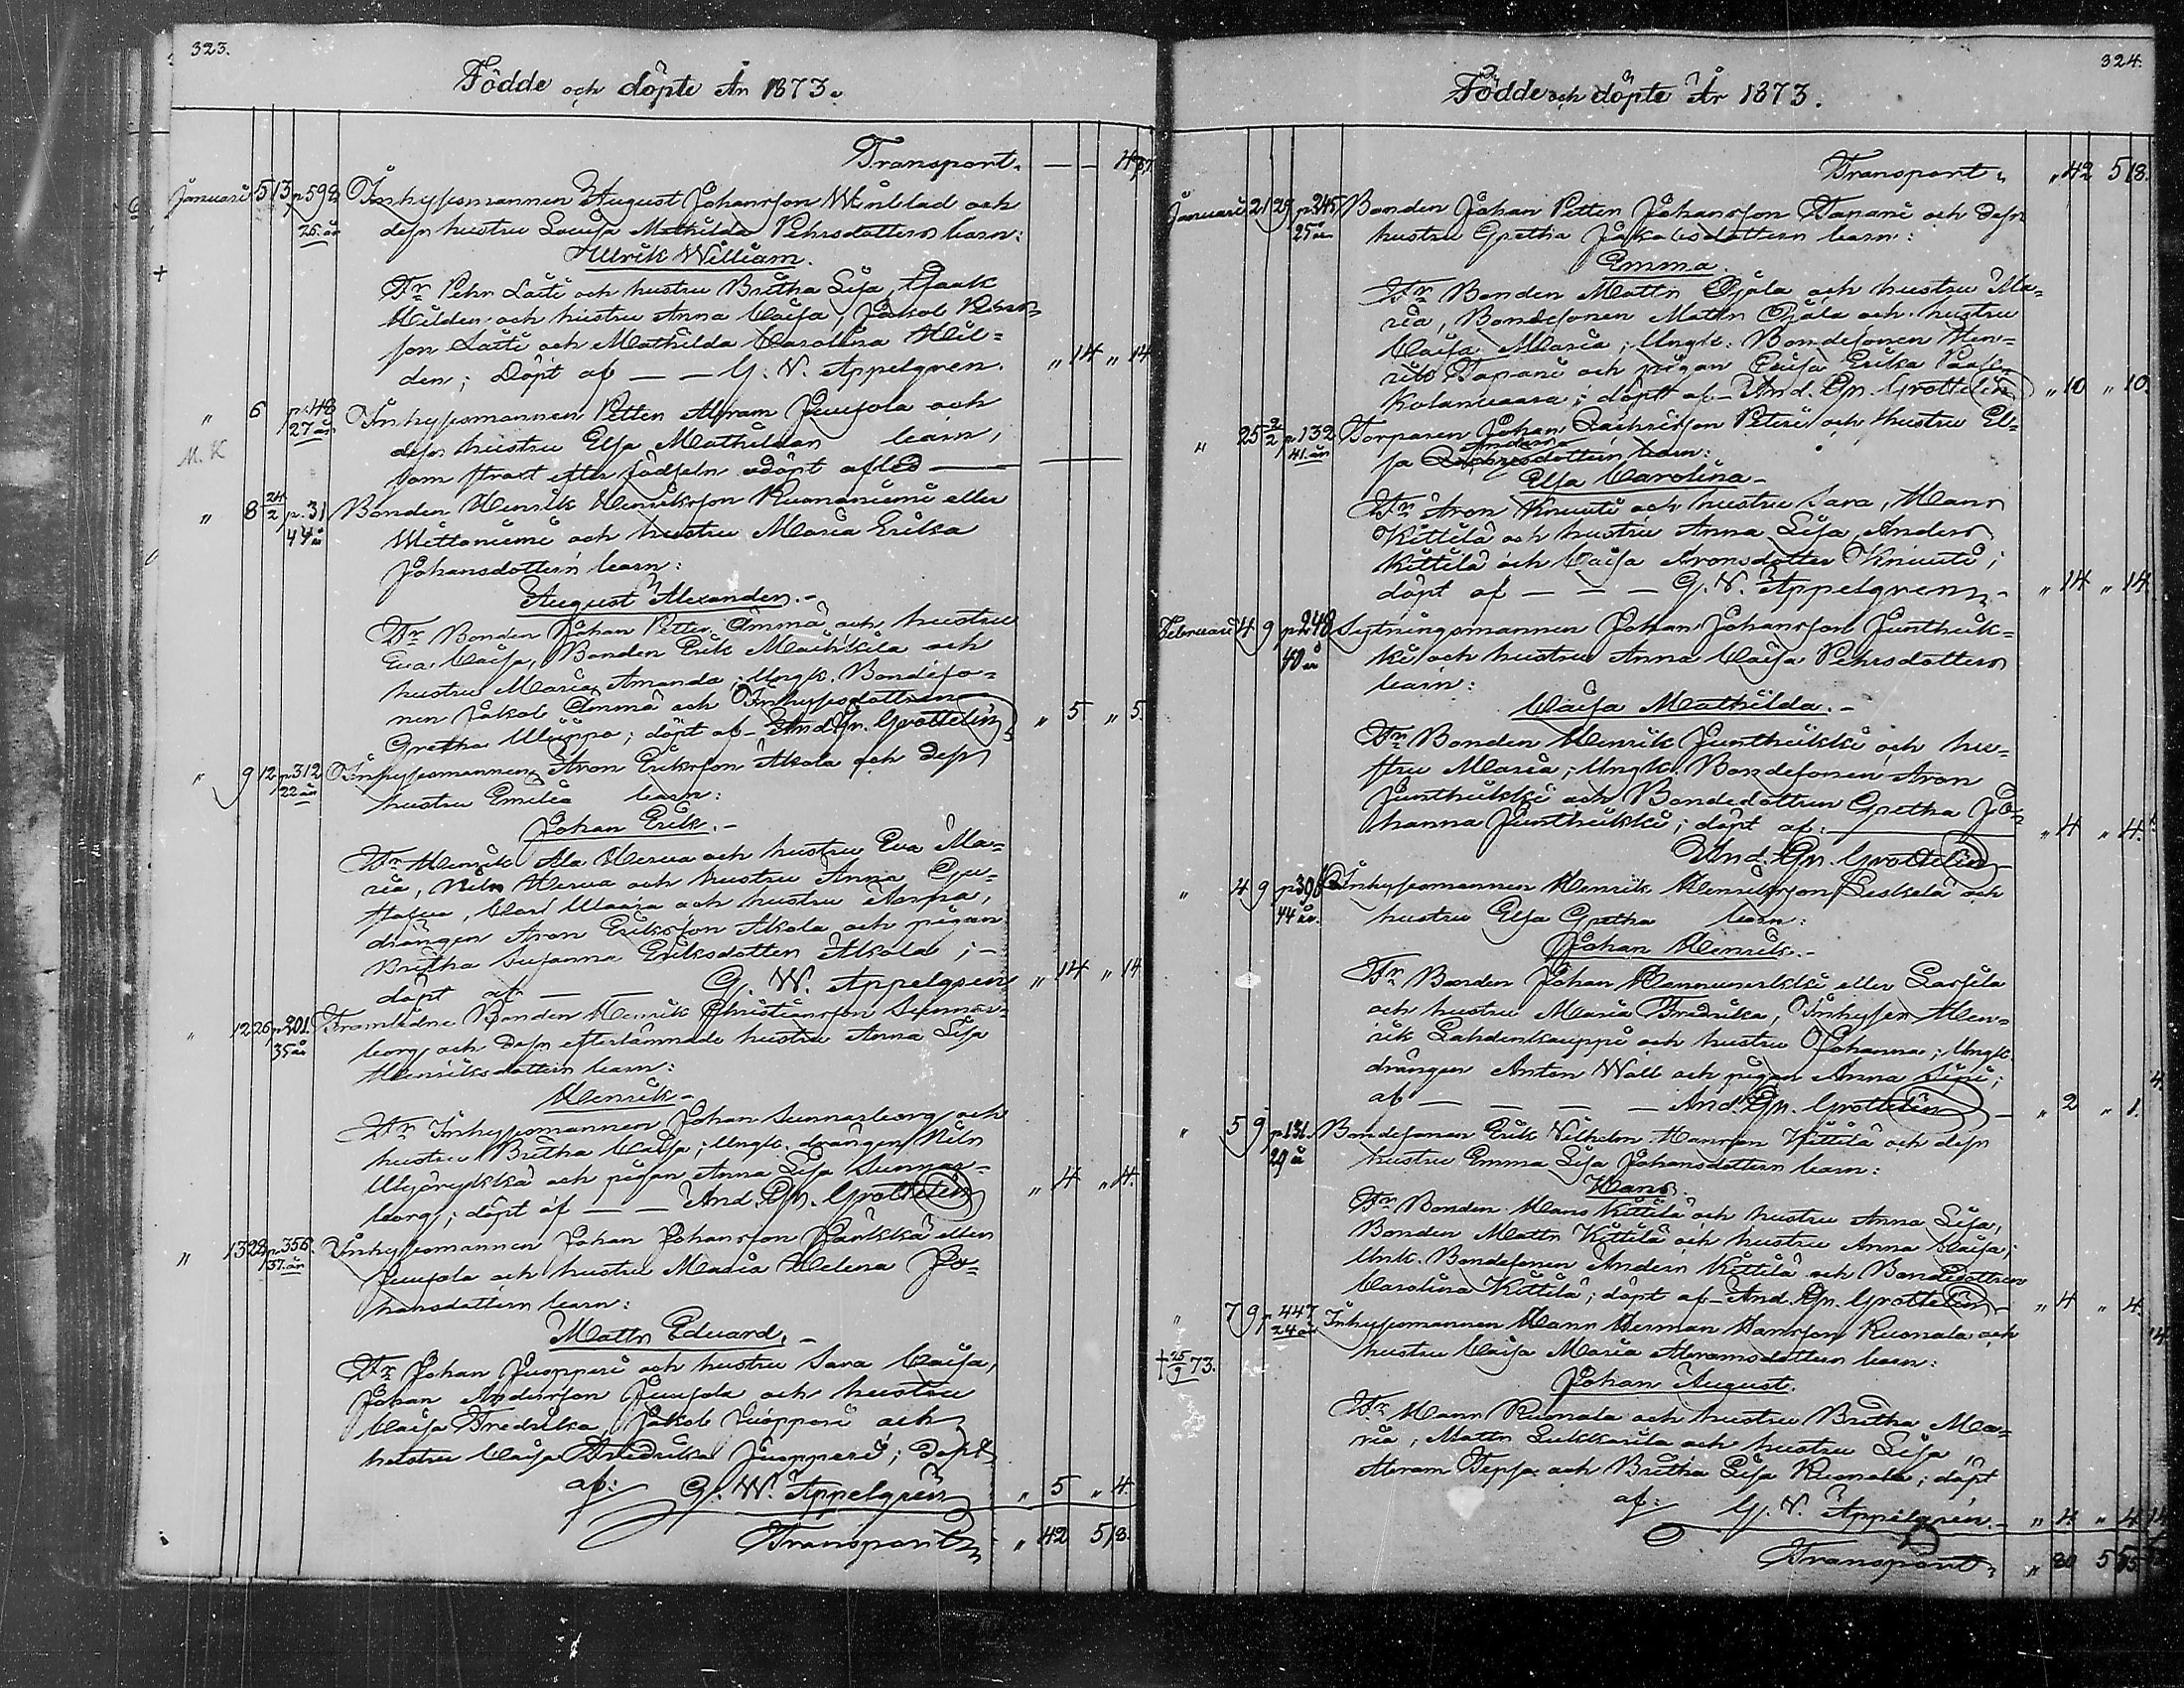 323.
Födde och döpte År 1873.
Transport. — —
Januari 5 13 p. 598 Inhysesmannen August Johansson Winblad och
25 år dess hustru Lovisa Mathilda Pehrsdotters barn:
Ulrik William.
Fr. Pehr Laiti och hustru Britha Lisa, Isaak
Hilden och hustru Anna Caisa, Jakob Pehrs-
son Laiti och Mathilda Carolina Hil-
den; Döpt af — — G. W. Appelgren. " 14 " 14
" 6 p. 48 Inhysesmannen Petter Abram Junjola och
27 år dess hustru Elsa Mathildas barn,
M. K som strax efter födseln odöpt afled — —
" 8 24/2 p. 31 Bonden Henrik Henriksson Kuonaniemi eller
44 år Wittaniemi och hustru Maria Erika
Johansdotters barn:
August Alexander. –
Fr. Bonden Johan Petter Ämmä och hustru
Eva Caisa, Bonden Erik Maikkila och
hustru Maria Amanda; Ungk. Bondeso-
nen Jakob Ämmä och Inhysesdottren
Gretha Uluppa; döpt af – And. Gr. Grottelin " 5 " 5.
" 9 12 p. 312 Inhysesmannen Aron Eriksson Akola och dess
22 år hustru Emilia barn:
Johan Erik. –
Fr. Henrik Ala Herva och hustru Eva Ma-
ria, Nils Herva och hustru Anna Gu-
stafva, Carl Waara och hustru Anna,
drängen Aron Eriksson Akola och pigan
Britha Susanna Eriksdotter Akola; –
döpt af — — G. W. Appelgren " 14 " 14
" 12 26 p. 201. Framlidne Bonden Henrik Christiansson Sunnas-
35 år borg och dess efterlämnade hustru Anna Lisa
Henriksdotters barn:
Henrik –
Fr. Inhysesmannen Johan Sunnasborg och
hustru Britha Caisa; Ungk. drängen Nils
och pigan Anna Lisa Sunnas-
borg; döpt af — — And. Gr. Grottelin " 4 " 4.
" 13 22 p. 356. Inhysesmannen Johan Johansson Pärkkä eller
37 år Junjola och hustru Maria Helena Jo-
hansdotters barn:
Matts Eduard. –
Fr. Johan Juopperi och hustru Sara Caisa,
Johan Andersson Junjola och hustru
Caisa Fredrika, Jakob Juopperi och
hustru Caisa Fredrika Juopperi; döpt
af: G. W. Appelgren " 5 " 4
Transport " 42 518
324.
Födde och döpte År 1873.
Transport " 42 518.
Januari 21 25 p. 245 Bonden Johan Petter Johansson Tapani och dess
25 år hustru Gretha Jakobsdotters barn:
Emma.
Fr. Bonden Matts Ojala och hustru Ma-
ria, Bondesonen Matts Ojala och hustru
Caisa Maria; Ungk. Bondesonen Hen-
rik Tapani och pigan Caisa Erika
Kolanvaara; döpt af – And. Gr. Grottelin " 10 " 10.
" 25 2/2 p. 132 Torparen Johan Zachrisson Peteri och hustru El-
41 år sa Anders dotters barn:
Elsa Carolina –
Fr. Aron Kniuti och hustru Sara, Hans
Kittilä och hustru Anna Lisa, Anders
Kittilä och Caisa Aronsdotter Kniuti;
döpt af — — — G. W. Appelgren – " 14 " 14.
Februari 4 9 p. 248 Sytningsmannen Johan Johansson Junthik-
40 år ki och hustru Anna Caisa Pehrsdotters
barn:
Caisa Mathilda. –
Fr. Bonden Henrik Junthikki och hu-
stru Maria; Ungk. Bondesonen Aron
Junthikki och Bondedottren Gretha Jo-
hanna Junthikki; döpt af: " 4 " 4.
And. Gr. Grottelin
" 4 9 Inhysesmannen Henrik Henriksson Leskelä och
44 år. hustru Elsa Gretha barn:
Johan Henrik. –
Fr. Bonden Johan eller Lassila
och hustru Maria Fredrika, Inhysen Hen-
rik Lahdenkauppi och hustru Johanna; Ungk
drängen Anton Wall och pigan Anna
af — — — — And. Gr. Grottelin – " 2 " 1.
" 5 9 p. 131. Bondesonen Erik Wilhelm Hansson Kittilä och dess
29 år hustru Emma Lisa Johansdotters barn:
Hans.
Fr. Bonden Hans Kittilä och hustru Anna Lisa,
Bonden Matts Kittilä och hustru Anna Caisa;
Unk. Bondesonen Anders Kittilä och Bondedottren
Carolina Kittilä; döpt af – And. Gr. Grottelin – " 4 " 4.
" 7 9 p. 447 Inhysesmannen Hans Herman Hansson Ruonala och
24 år hustru Caisa Maria Abramsdotters barn:
† 25/9 73.
Johan August.
Fr. Hans Ruonala och hustru Britha Ma-
ria, Matts Sukkarila och hustru Lisa,
Abram Tepsa och Britha Lisa Ruonala; döpt
af: G. W. Appelgren. – " 4 " 4
Transport "